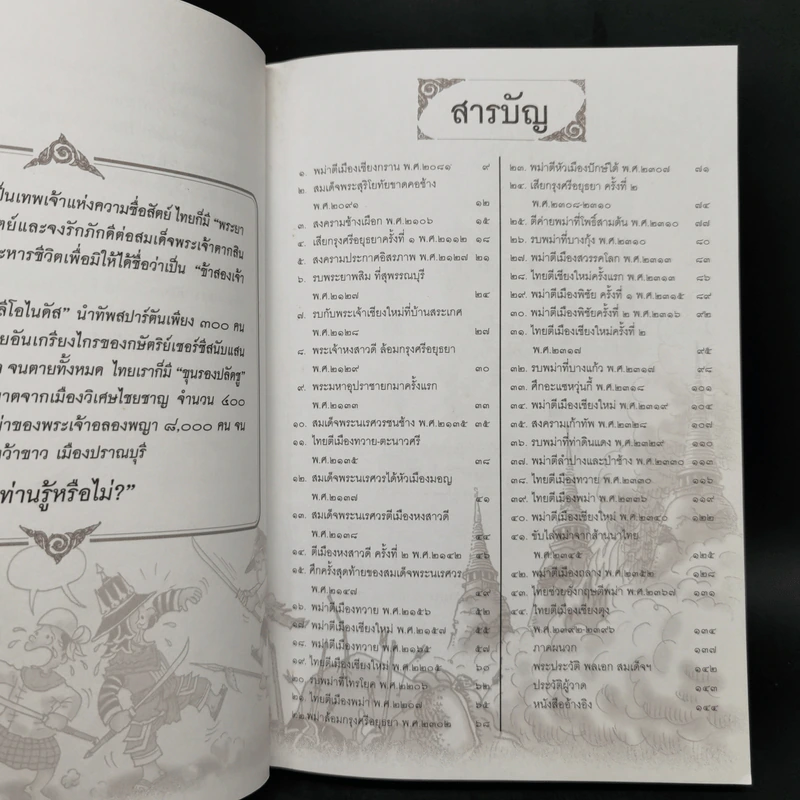 ป็นเทพเจ้าแห่งความซื่อสัตย์ ไทยก็มี “พระยา
ตย์และจงรักภักดีต่อสมเด็จพระเจ้าตากสิน
ะหารชีวิตเพื่อมิให้ได้ชื่อว่าเป็น “ข้าสองเจ้า
ลีโอไนดัส” นำทัพสปาร์ตันเพียง ๓๐๐ คน
ยอันเกรียงไกรของกษัตริย์เซอร์ซีสนับแสน
จนตายทั้งหมด ไทยเราก็มี “ขุนรองปลัดชู”
าตจากเมืองวิเศษไชยชาญ จำนวน ๔๐๐
ม่าของพระเจ้าอลองพญา ๘,๐๐๐ คน จน
ว้าขาว เมืองปราณบุรี
ท่านรู้หรือไม่?”
สารบัญ
๑. พม่าตีเมืองเชียงกราน พ.ศ.๒๐๘๑ ๙
๒. สมเด็จพระสุริโยทัยขาดคอช้าง
พ.ศ.๒๐๙๑ ๑๒
๓. สงครามช้างเผือก พ.ศ.๒๑๐๖ ๑๕
๔. เสียกรุงศรีอยุธยาครั้งที่ ๑ พ.ศ.๒๑๑๒ ๑๘
๕. สงครามประกาศอิสรภาพ พ.ศ.๒๑๒๗ ๒๑
๖. รบพระยาพสิม ที่สุพรรณบุรี
พ.ศ.๒๑๒๗ ๒๔
๗. รบกับพระเจ้าเชียงใหม่ที่บ้านสระเกศ
พ.ศ.๒๑๒๘ ๒๗
๘. พระเจ้าหงสาวดี ล้อมกรุงศรีอยุธยา
พ.ศ.๒๑๒๙ ๓๐
๙. พระมหาอุปราชายกมาครั้งแรก
พ.ศ.๒๑๓๓ ๓๓
๑๐. สมเด็จพระนเรศวรชนช้าง พ.ศ.๒๑๓๕ ๓๕
๑๑. ไทยตีเมืองทวาย-ตะนาวศรี
พ.ศ.๒๑๓๕ ๓๘
๑๒. สมเด็จพระนเรศวรได้หัวเมืองมอญ
พ.ศ.๒๑๓๗ ๔๑
๑๓. สมเด็จพระนเรศวรตีเมืองหงสาวดี
พ.ศ.๒๑๓๘ ๔๔
๑๔. ตีเมืองหงสาวดี ครั้งที่ ๒ พ.ศ.๒๑๔๒ ๔๖
๑๕. ศึกครั้งสุดท้ายของสมเด็จพระนเรศวร
พ.ศ.๒๑๔๗ ๔๙
๑๖. พม่าตีเมืองทวาย พ.ศ.๒๑๕๖ ๕๒
๑๗. พม่าตีเมืองเชียงใหม่ พ.ศ.๒๑๕๗ ๕๕
๑๘. พม่าตีเมืองทวาย พ.ศ.๒๑๖๕ ๕๗
๑๙. ไทยตีเมืองเชียงใหม่ พ.ศ.๒๒๐๕ ๖๐
๒๐. รบพม่าที่ไทรโยค พ.ศ.๒๒๐๖ ๖๒
๒๑. ไทยตีเมืองพม่า พ.ศ.๒๒๐๗ ๖๕
๒๒. พม่าล้อมกรุงศรีอยุธยา พ.ศ.๒๓๐๒ ๖๘
๒๓. พม่าตีหัวเมืองปักษ์ใต้ พ.ศ.๒๓๐๗ ๗๑
๒๔. เสียกรุงศรีอยุธยา ครั้งที่ ๒
พ.ศ.๒๓๐๘-๒๓๑๐ ๗๔
๒๕. ตีค่ายพม่าที่โพธิ์สามต้น พ.ศ.๒๓๑๐ ๗๗
๒๖. รบพม่าที่บางกุ้ง พ.ศ.๒๓๑๐ ๘๐
๒๗. พม่าตีเมืองสวรรคโลก พ.ศ.๒๓๑๓ ๘๓
๒๘. ไทยตีเชียงใหม่ครั้งแรก พ.ศ.๒๓๑๓ ๘๖
๒๙. พม่าตีเมืองพิชัย ครั้งที่ ๑ พ.ศ.๒๓๑๕ ๘๙
๓๐. พม่าตีเมืองพิชัยครั้งที่ ๒ พ.ศ.๒๓๑๖ ๙๒
๓๑. ไทยตีเมืองเชียงใหม่ครั้งที่ ๒
พ.ศ.๒๓๑๗ ๙๕
๓๒. รบพม่าที่บางแก้ว พ.ศ.๒๓๑๗ ๙๘
๓๓. ศึกอะแซหวุ่นกี้ พ.ศ.๒๓๑๘ ๑๐๑
๓๔. พม่าตีเมืองเชียงใหม่ พ.ศ.๒๓๑๙ ๑๐๔
๓๕. สงครามเก้าทัพ พ.ศ.๒๓๒๘ ๑๐๗
๓๖. รบพม่าที่ท่าดินแดง พ.ศ.๒๓๒๙ ๑๑๐
๓๗. พม่าตีลำปางและป่าซาง พ.ศ.๒๓๓๐ ๑๑๓
๓๘. ไทยตีเมืองทวาย พ.ศ.๒๓๓๐ ๑๑๖
๓๙. ไทยตีเมืองพม่า พ.ศ.๒๓๓๖ ๑๑๙
๔๐. พม่าตีเมืองเชียงใหม่ พ.ศ.๒๓๔๐ ๑๒๒
๔๑. ขับไล่พม่าจากล้านนาไทย
พ.ศ.๒๓๔๕ ๑๒๕
๔๒. พม่าตีเมืองถลาง พ.ศ.๒๓๕๒ ๑๒๘
๔๓. ไทยช่วยอังกฤษตีพม่า พ.ศ.๒๓๖๗ ๑๓๑
๔๔. ไทยตีเมืองเชียงตุง
พ.ศ.๒๓๙๒-๒๓๙๖ ๑๓๔
ภาคผนวก ๑๓๗
พระประวัติ พลเอก สมเด็จฯ ๑๔๒
ประวัติผู้วาด ๑๔๓
หนังสืออ้างอิง ๑๔๔